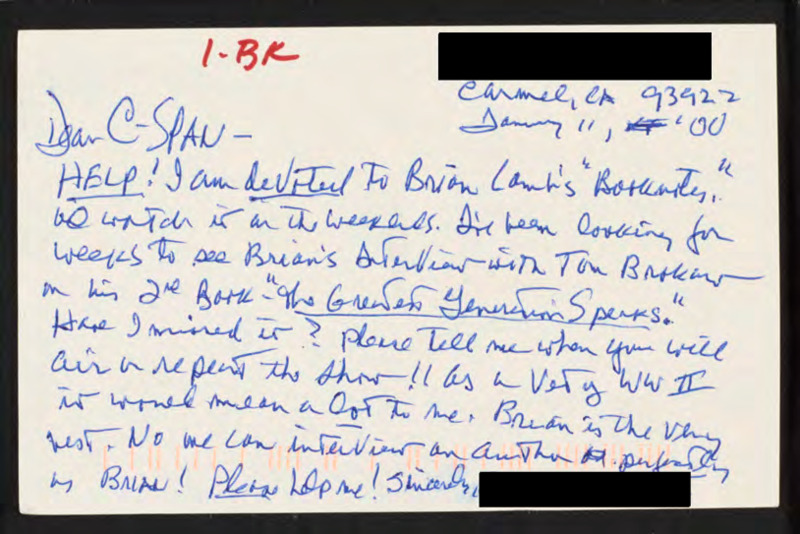 1-BK
Carmel, CA 93922
January 11, '00
Dear C-SPAN -
HELP! I am devoted to Brian Lamb's "Booknotes."
We watch it on the weekends. I've been looking for
weeks to see Brian's Interview with Tom Brokaw
on his 2nd Book - "The Greatest Generation Speaks."
Have I missed it? Please tell me when you will
air or repeat the show!! As a Vet of WW II
it would mean a lot to me. Brian is the very
best. No one can interview an author as perfectly
as BRIAN! Please help me! Sincerely,